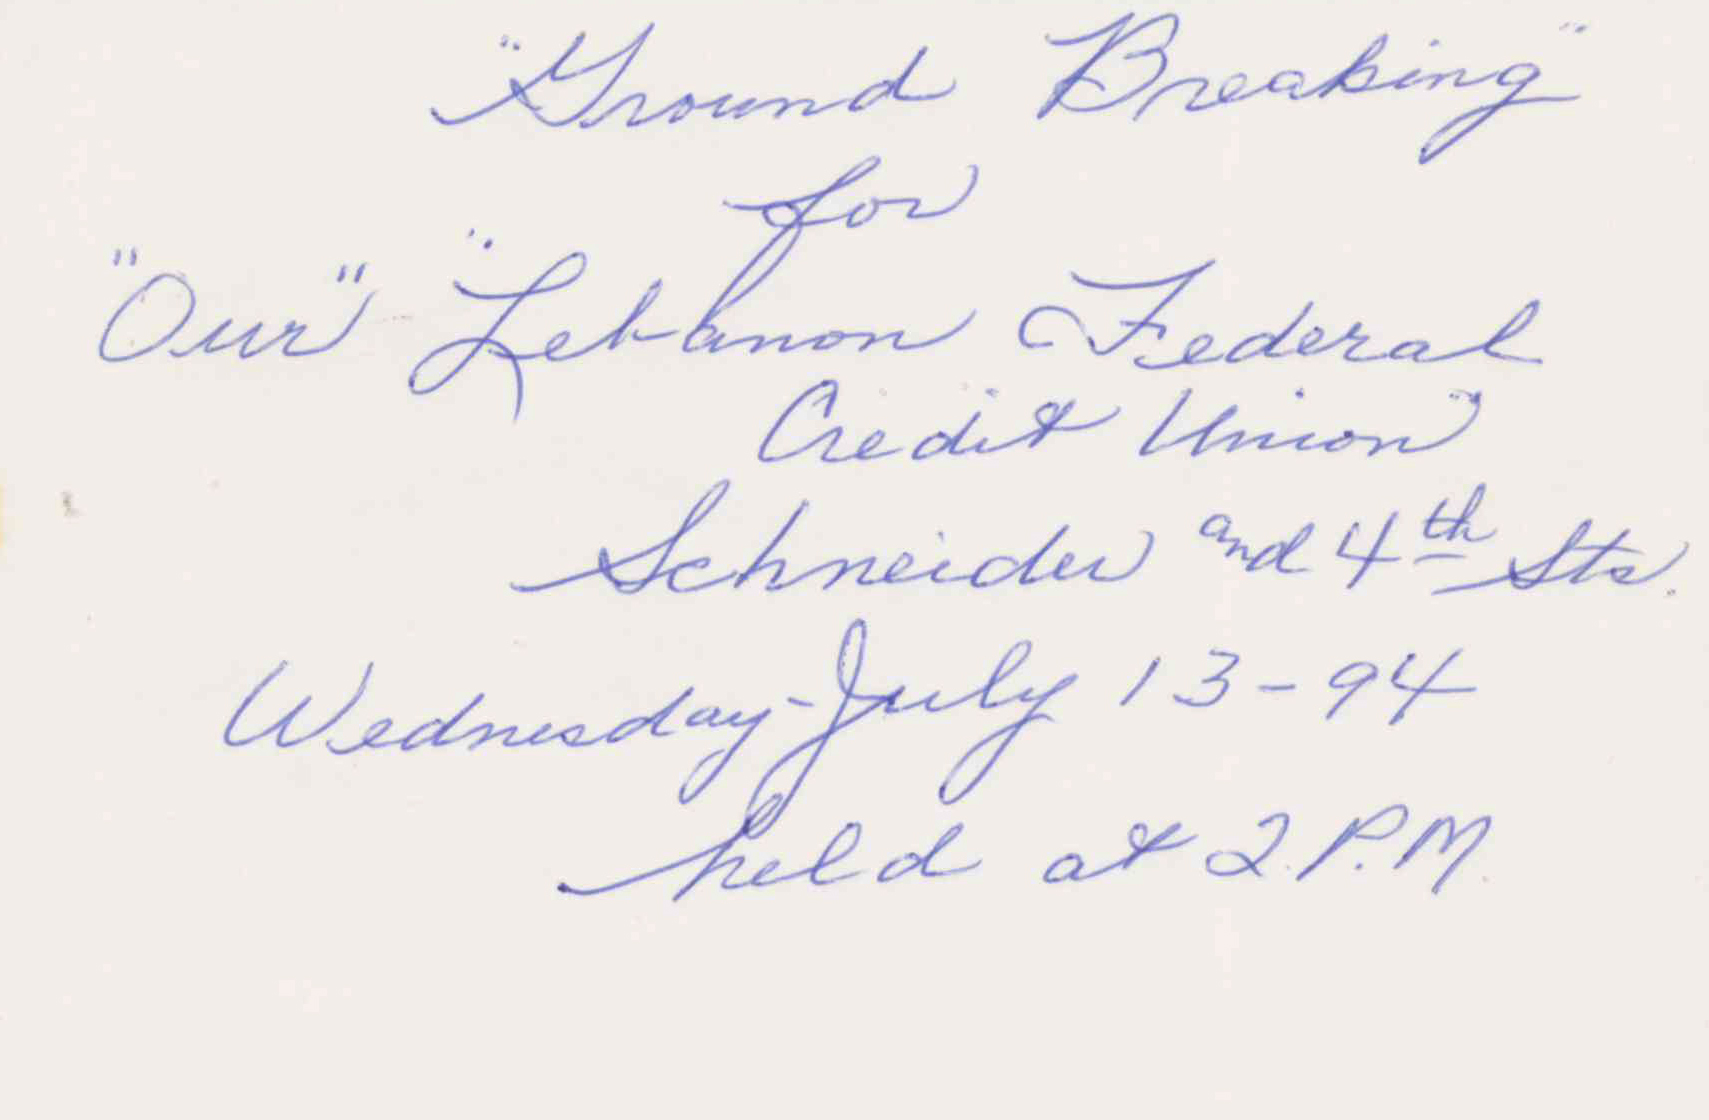 "Ground Breaking"
for
"Our" "Lebanon Federal
Credit Union"
Schneider and 4th Sts.
Wednesday-July 13-94
held at 2 P.M.